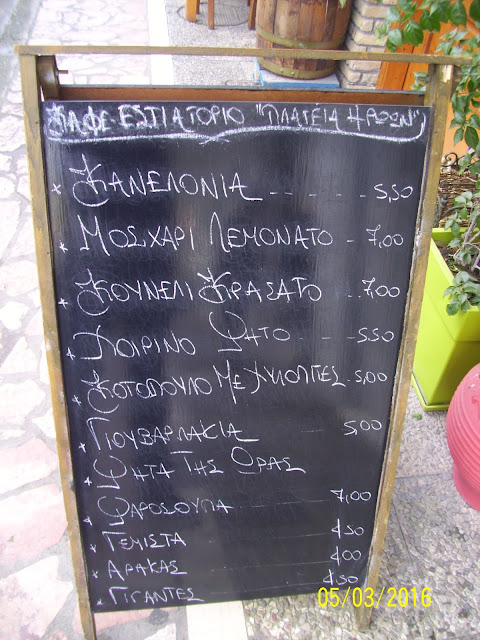 ΚΑΦΕ-ΕΣΤΙΑΤΟΡΙΟ "ΠΛΑΤΕΙΑ ΗΡΩΩΝ"
* ΚΑΝΕΛΟΝΙΑ - - - - - - 5,50
* ΜΟΣΧΑΡΙ ΛΕΜΟΝΑΤΟ - 7,00
* ΚΟΥΝΕΛΙ ΚΡΑΣΑΤΟ ... 7,00
* ΧΟΙΡΙΝΟ ΨΗΤΟ - - - - 5,50
* ΚΟΤΟΠΟΥΛΟ ΜΕ ΧΥΛΟΠΙΤΕΣ. 5,00
* ΓΙΟΥΒΑΡΛΑΚΙΑ 5,00
* ΨΗΤΑ ΤΗΣ ΩΡΑΣ
* ΨΑΡΟΣΟΥΠΑ 7,00
* ΓΕΜΙΣΤΑ 4,50
* ΑΡΑΚΑΣ 4,00
* ΓΙΓΑΝΤΕΣ 4,50
05/03/2016